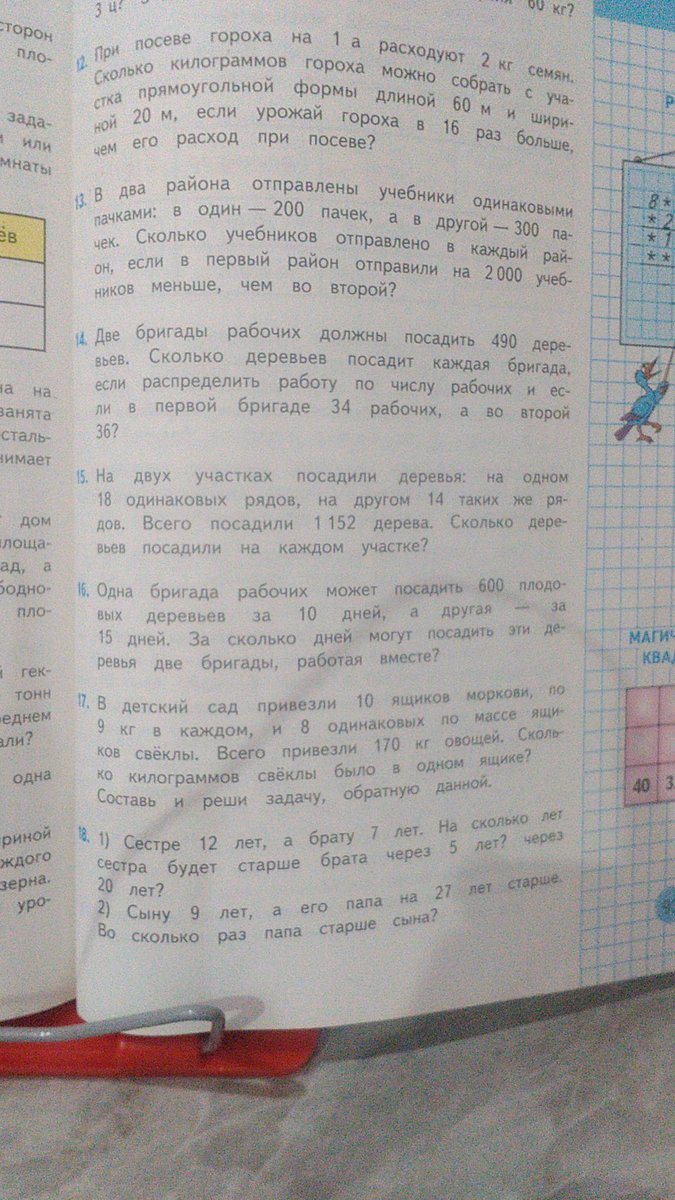 3 ц?
60 кг?
12. При посеве гороха на 1 а расходуют 2 кг семян.
Сколько килограммов гороха можно собрать с уча-
стка прямоугольной формы длиной 60 м и шири-
ной 20 м, если урожай гороха в 16 раз больше,
чем его расход при посеве?
13. В два района отправлены учебники одинаковыми
пачками: в один — 200 пачек, а в другой — 300 па-
чек. Сколько учебников отправлено в каждый рай-
он, если в первый район отправили на 2 000 учеб-
ников меньше, чем во второй?
14. Две бригады рабочих должны посадить 490 дере-
вьев. Сколько деревьев посадит каждая бригада,
если распределить работу по числу рабочих и ес-
ли в первой бригаде 34 рабочих, а во второй
36?
15. На двух участках посадили деревья: на одном
18 одинаковых рядов, на другом 14 таких же ря-
дов. Всего посадили 1 152 дерева. Сколько дере-
вьев посадили на каждом участке?
16. Одна бригада рабочих может посадить 600 плодо-
вых деревьев за 10 дней, а другая — за
15 дней. За сколько дней могут посадить эти де-
ревья две бригады, работая вместе?
17. В детский сад привезли 10 ящиков моркови, по
9 кг в каждом, и 8 одинаковых по массе ящи-
ков свёклы. Всего привезли 170 кг овощей. Сколь-
ко килограммов свёклы было в одном ящике?
Составь и реши задачу, обратную данной.
18. 1) Сестре 12 лет, а брату 7 лет. На сколько лет
сестра будет старше брата через 5 лет? через
20 лет?
2) Сыну 9 лет, а его папа на 27 лет старше.
Во сколько раз папа старше сына?
сторон
пло-
зада-
или
мнаты
ёв
на на
занята
сталь-
нимает
дом
площа-
ад, а
бодно-
пло-
гек-
тонн
реднем
али?
одна
ириной
аждого
зерна.
уро-
Р
8*
* 2
* 1
* *
МАГИЧ
КВАД
40 3